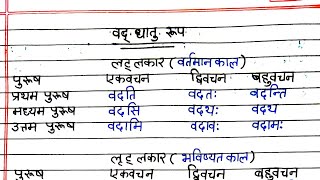 वद् धातु रूप
लट् लकार (वर्तमान काल)
पुरूष एकवचन द्विवचन बहुवचन
प्रथम पुरूष वदति वदतः वदन्ति
मध्यम पुरूष वदसि वदथः वदथ
उत्तम पुरूष वदामि वदावः वदामः
लृट् लकार ( भविष्यत काल)
पुरूष एकवचन द्विवचन बहुवचन